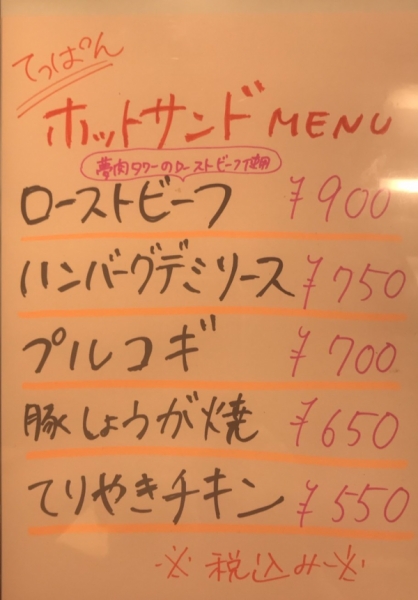 てっぱん
ホットサンド MENU
夢肉タワーのローストビーフ使用
ローストビーフ ¥900
ハンバーグデミソース ¥750
プルコギ ¥700
豚しょうが焼 ¥650
てりやきチキン ¥550
※税込み※